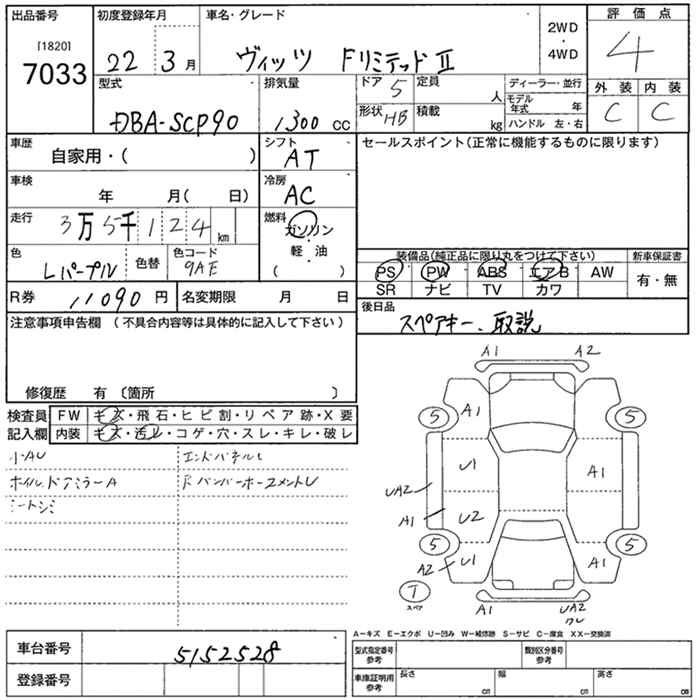 出品番号 初度登録年月 車名・グレード 評価点
[1820]
7033
22 3月 ヴィッツ FリミテッドⅡ 2WD・4WD 4
型式 排気量 ドア 5 定員 人 ディーラー・並行 外装 内装
DBA-SCP90 1300 CC 形状 HB 積載 kg モデル年式 年 C C
ハンドル 左・右
車歴 自家用・( ) シフト AT セールスポイント(正常に機能するものに限ります)
車検 年 月( 日) 冷房 AC
走行 3万5千124km 燃料 ガソリン
軽・油
( )
色 Lパープル 色替 色コード 9AE 装備品(純正品に限り丸をつけて下さい) 新車保証書
PS PW ABS エアB AW 有・無
SR ナビ TV カワ
R券 11090円 名変期限 月 日 後日品
スペアキー、取説
注意事項申告欄 (不具合内容等は具体的に記入して下さい)
修復歴 有〔箇所 〕
検査員 FW キズ・飛石・ヒビ割・リペア跡・X要
記入欄 内装 キズ・汚レ・コゲ・穴・スレ・キレ・破レ
小AU エンドパネルU
ホイルドアミラーA Rバンパーホースメント U
シートシミ
A1 A2
5 A1 5
U1 A1
UA2
A1 U2
5 A2 U1 A1 5
T スペア A1 UA2
A-キズ E-エクボ U-凹み W-補修跡 S-サビ C-腐食 XX-交換済
車台番号 5152528 型式指定番号 参考 類別区分番号 参考
登録番号 車庫証明用 参考 長さ cm 幅 cm 高さ cm